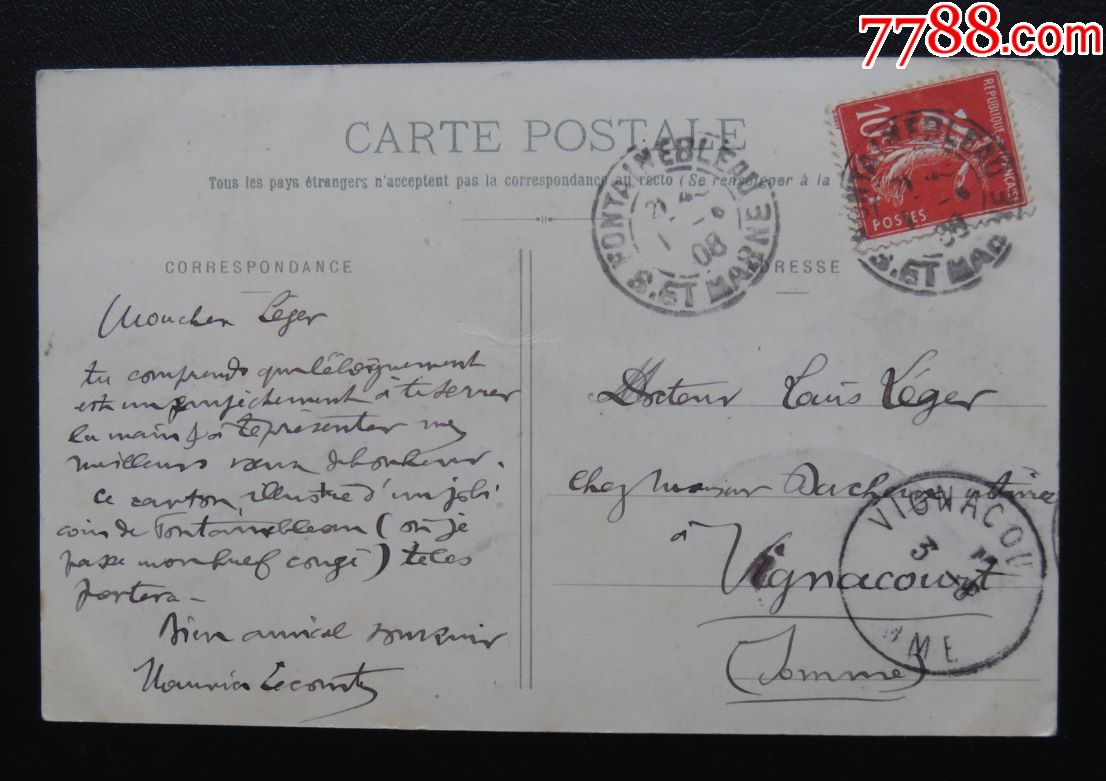 7788.com
CARTE POSTALE
Tous les pays étrangers n'acceptent pas la correspondance au recto (Se renseigner à la
RÉPUBLIQUE FRANÇAISE
10
POSTES
FONTAINEBLEAU
1 08
S. ET MARNE
FONTAINEBLEAU
08
S. ET MARNE
CORRESPONDANCE
ADRESSE
Mon cher Léger
tu comprends que l'éloignement
est un empêchement à te serrer
la main & à te présenter mes
meilleurs vœux de bonheur.
Ce carton, illustré d'un joli
coin de Fontainebleau (où je
passe mon bref congé) te les
portera –
Bien amical souvenir
Maurice Lecomte
Docteur Louis Léger
chez Monsieur
à
Vignacourt
(Somme)
VIGNACOU
3
MME